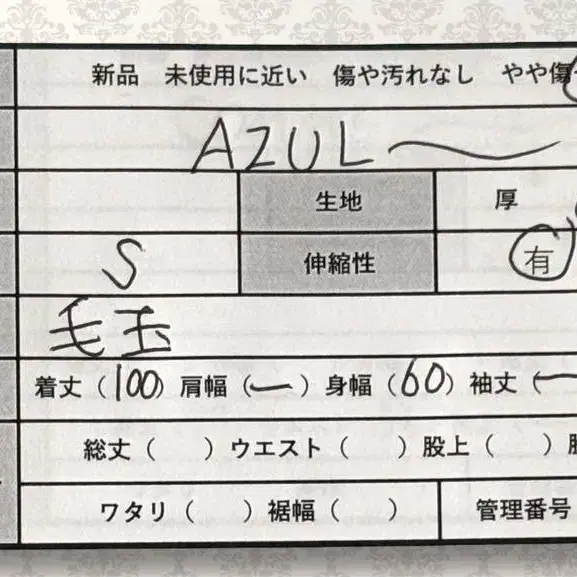 新品 未使用に近い 傷や汚れなし やや傷
AZUL〜
生地 厚
S 伸縮性 有
毛玉
着丈（100）肩幅（ー）身幅（60）袖丈（ー
総丈（　）ウエスト（　）股上（　）
ワタリ（　）裾幅（　） 管理番号